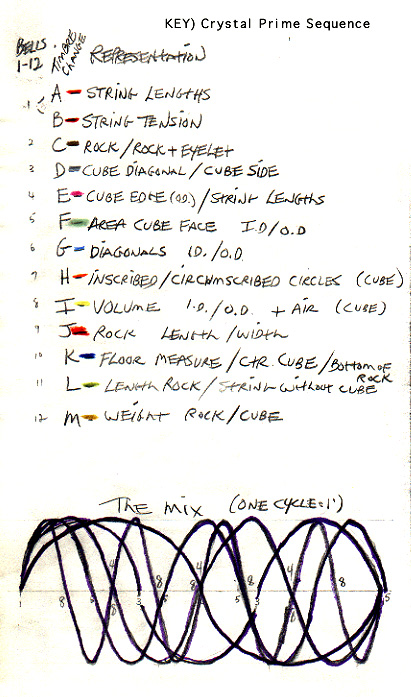 KEY) Crystal Prime Sequence
BELLS 1-12 TIMBRE CHANGE REPRESENTATION
1 A - STRING LENGTHS
B - STRING TENSION
2 C - ROCK/ROCK + EYELET
3 D - CUBE DIAGONAL/CUBE SIDE
4 E - CUBE EDGE (O.D.)/STRING LENGTHS
5 F - AREA CUBE FACE I.D/O.D
6 G - DIAGONALS I.D./O.D
7 H - INSCRIBED/CIRCUMSCRIBED CIRCLES (CUBE)
8 I - VOLUME I.D./O.D. + AIR (CUBE)
9 J - ROCK LENGTH/WIDTH
10 K - FLOOR MEASURE/CTR. CUBE/BOTTOM OF ROCK
11 L - LENGTH ROCK/STRING WITHOUT CUBE
12 M - WEIGHT ROCK/CUBE
THE MIX (ONE CYCLE=1')
4 4 4
8 8 8
1 8 5 8 3 5 8 5